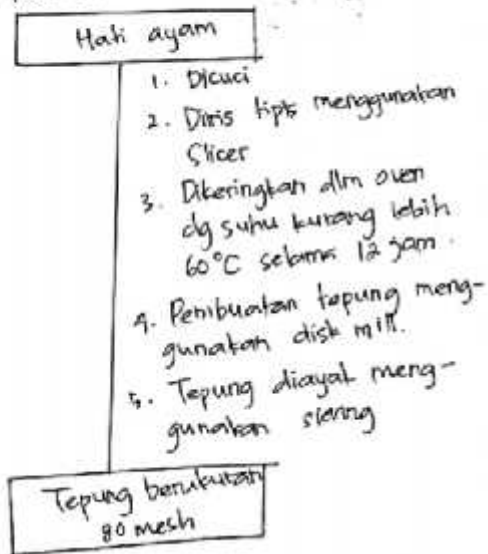 Hati ayam
1. Dicuci
2. Diiris tipis menggunakan
Slicer
3. Dikeringkan dlm oven
dg suhu kurang lebih
60°C selama 12 jam.
4. Pembuatan tepung meng-
gunakan disk mill.
5. Tepung diayak meng-
gunakan siering
Tepung berukuran
80 mesh